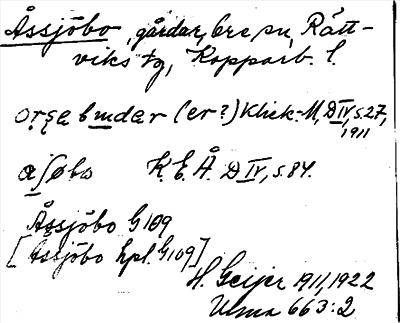 Åssjöbo, gårdar, bre sn, Rätt-
viks tg, Kopparb. l.
orsa bmdar (er?) Klick-M, DIV, s.27,
1911
aʃøbo K.E.Å. DIV, s.84.
Åssjöbo G 109
[Åssjöbo hpl. G109]
H. Geijer 1911, 1922
Ulma 663:2